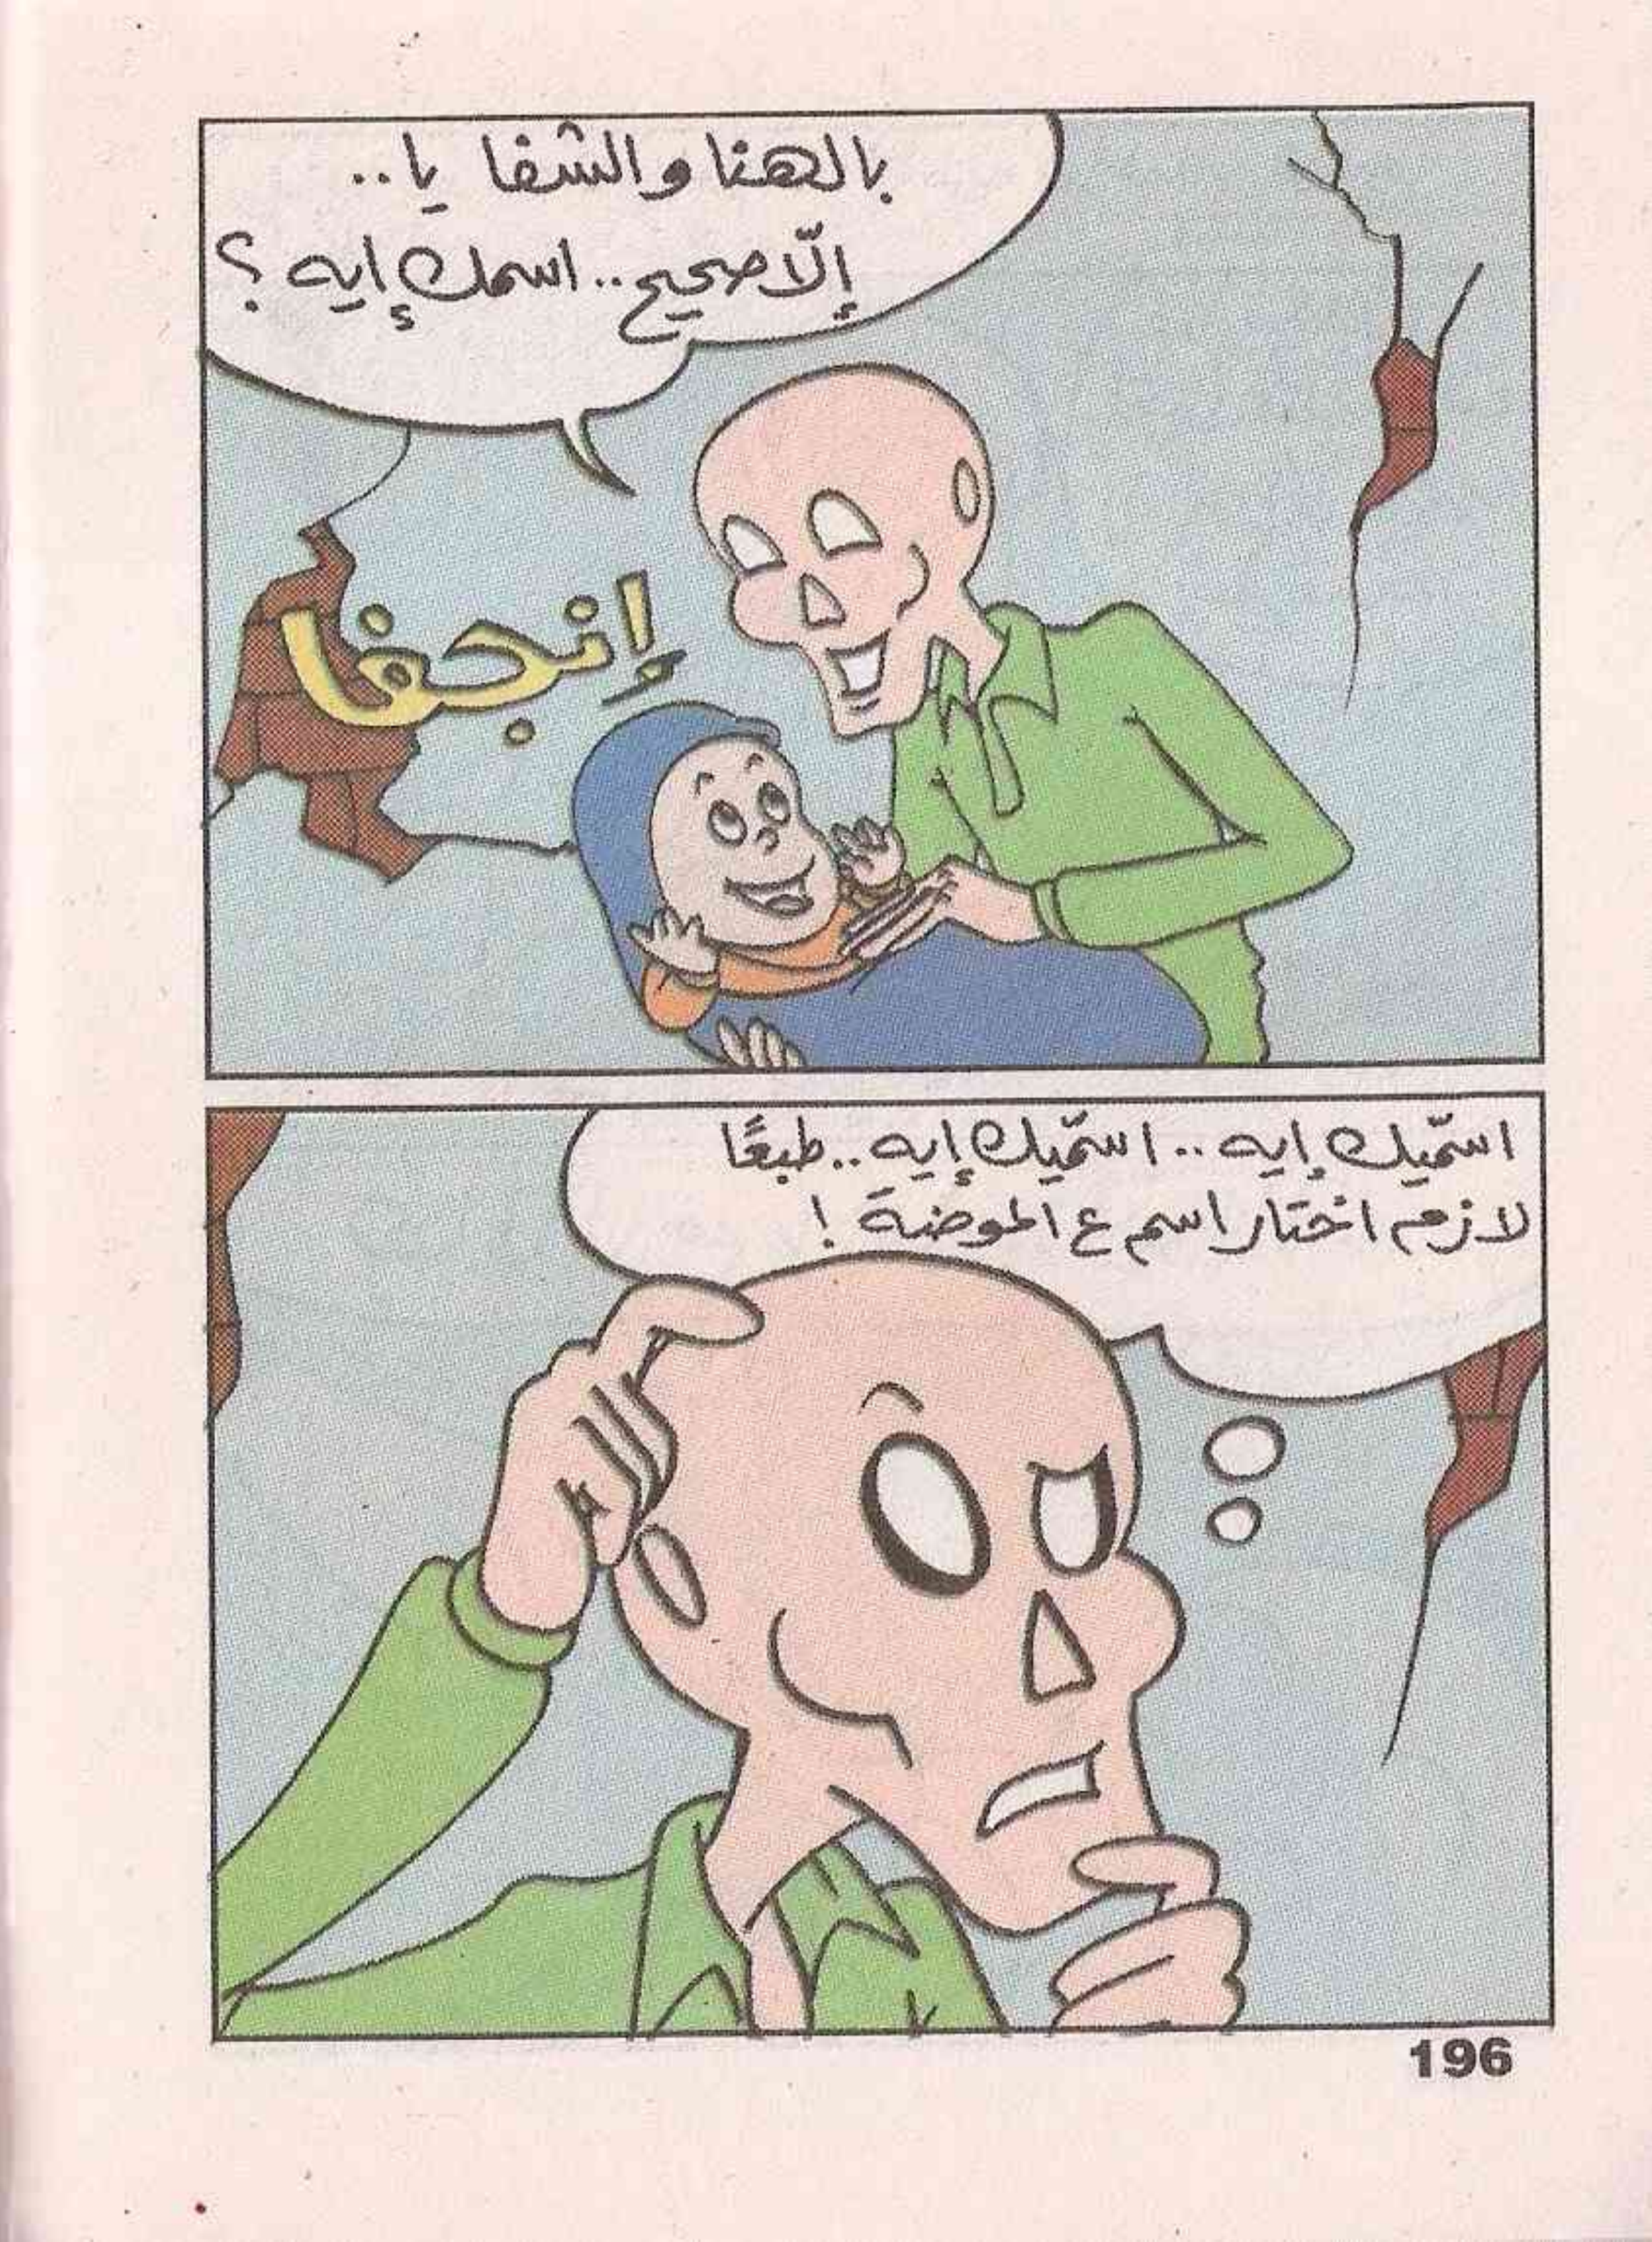 بالهنا والشفا يا..
إلّا صحيح.. اسمك إيه؟
إنجفا
اسمّيك إيه.. اسمّيك إيه.. طبعًا
لازم اختار اسم ع الموضة!
196